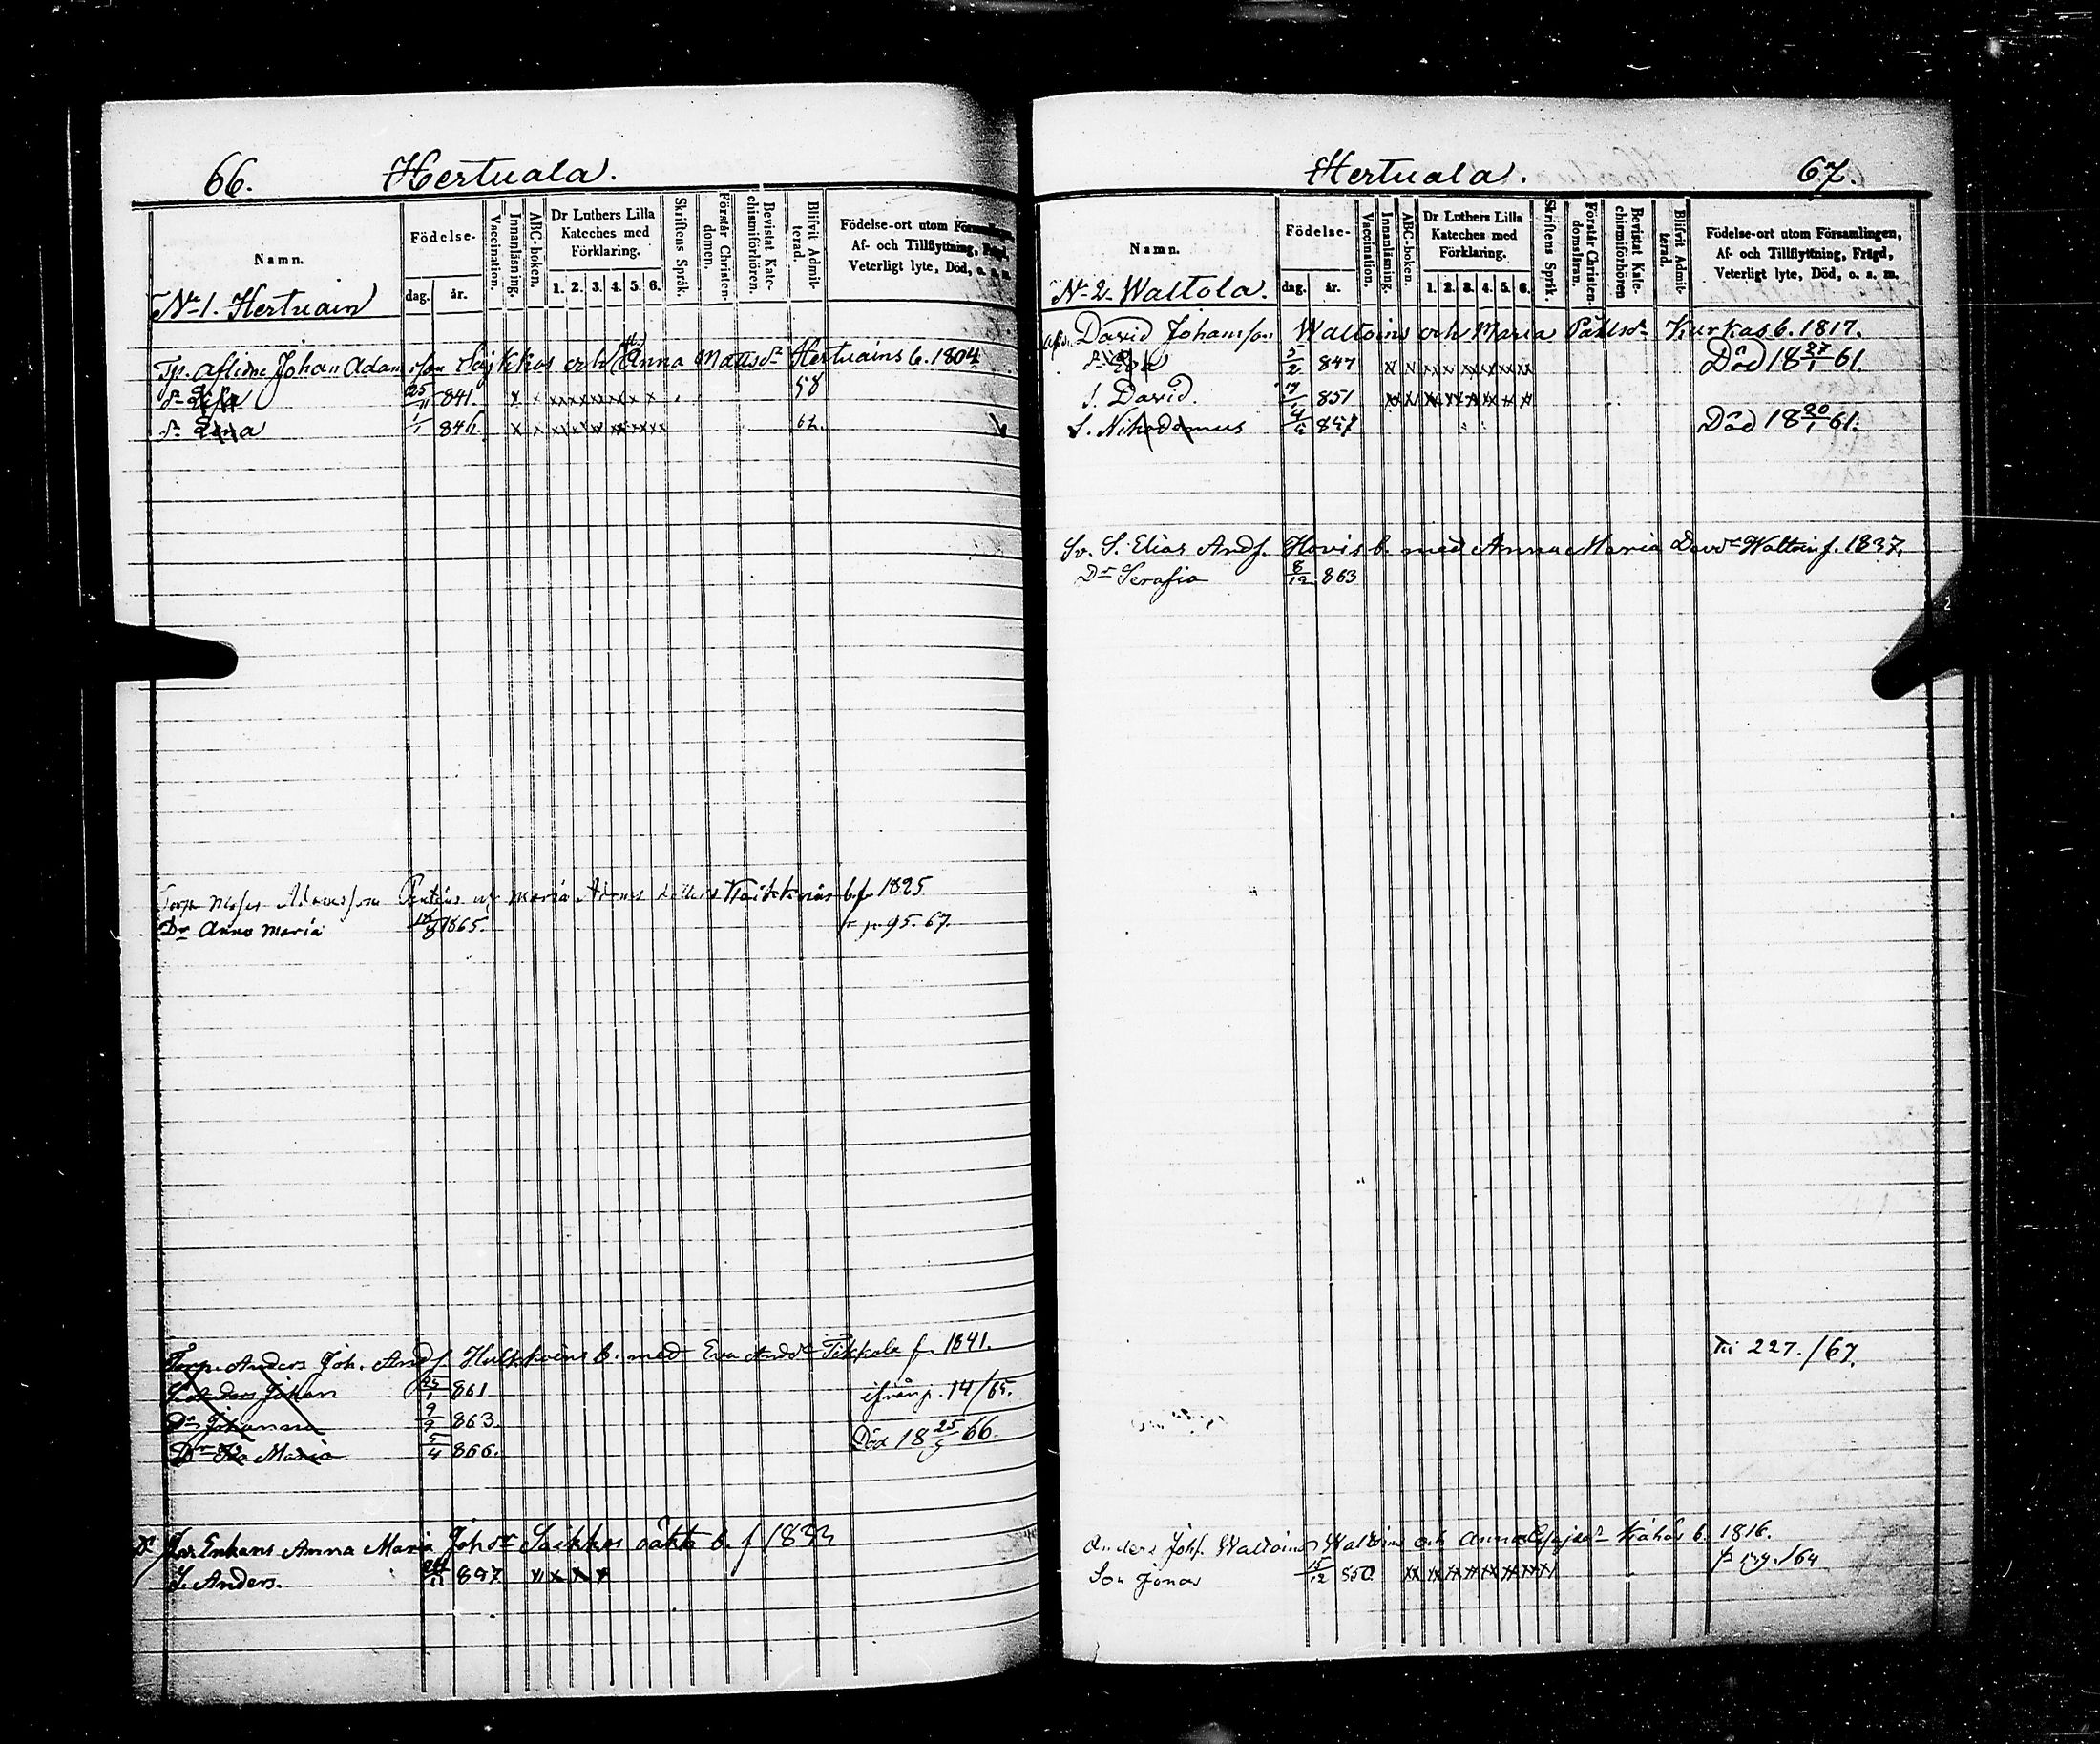 66. Hertuala.
Namn.
Födelse-
dag. år.
Vaccination.
Innanläsning.
ABC-boken.
Dr Luthers Lilla Kateches med Förklaring.
1. 2. 3. 4. 5. 6.
Skriftens Språk.
Förstår Christendomen.
Bevistat Katechismiförhören.
Blifvit Admitterad.
Födelse-ort utom Församlingen,
Af- och Tillflyttning, Frägd,
Veterligt lyte, Död, o. s. m.
No 1. Hertuain
Tp. aflidne Johan Adamsson och Anna Mattsdr Hertuains b. 1804
dr 25/11 841. x x x x x x x x x 58
dr 1/1 846. x x x x x x x x x 62.
Adamsson och Maria Adams b. f. 1825
Dr Anna Maria 8 1865. p. 95. 67.
Torp. Anders Joh. Andf. b. med Eva Andsdr f. 1841.
S. Anders Johan 25/1 861 ifrån p. 14/65.
Dr Johanna 863.
Dr Ida Maria 5/4 866. Död 18 25/5 66.
Enkans Anna Maria Johdr Saikkos b. f 1833
S. Anders. 857 x x x x
Hertuala. 67.
Namn.
Födelse-
dag. år.
Vaccination.
Innanläsning.
ABC-boken.
Dr Luthers Lilla Kateches med Förklaring.
1. 2. 3. 4. 5. 6.
Skriftens Språk.
Förstår Christendomsläran.
Bevistat Katechismiförhören
Blifvit Admitterad.
Födelse-ort utom Församlingen,
Af- och Tillflyttning, Frägd,
Veterligt lyte, Död, o. s. m.
No 2. Waltola.
David Johansson Waltoins och Maria Påhlsdr Kurkas b. 1817.
dr Eva 5/2 847 Död 18 27/1 61.
S. David. 851
S. Nikodemus 857 Död 18 20/1 61.
Sv. S. Elias Andf. Hovis b. med Anna Maria Davdr Waltoin f. 1837.
Dr Serafia 8/12 863
Till 227./67.
Anders Johf. Waltoins Waltoins och Anna b. 1816.
Son Jonas 15/12 850 /64